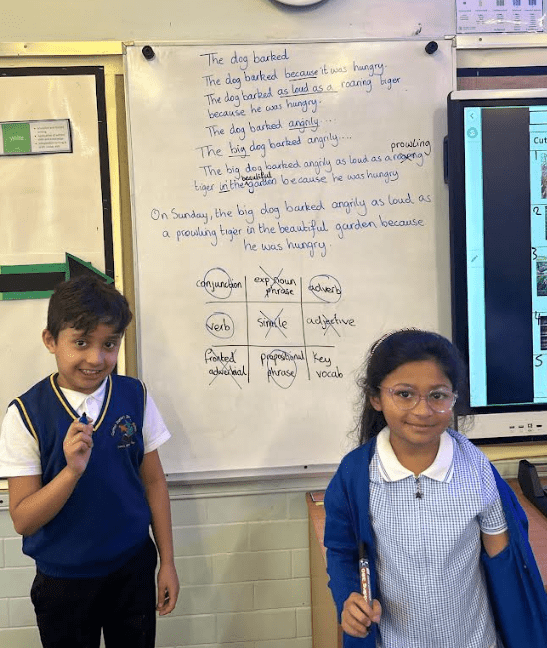 The dog barked
The dog barked because it was hungry.
The dog barked as loud as a roaring tiger
because he was hungry.
The dog barked angrily....
The big dog barked angrily....
prowling
The big dog barked angrily as loud as a
beautiful
tiger in the garden because he was hungry
On Sunday, the big dog barked angrily as loud as
a prowling tiger in the beautiful garden because
he was hungry.
conjunction exp noun phrase adverb
verb simile adjective
fronted adverbial prepositional phrase key vocab
Cut
1
2
3
4
5